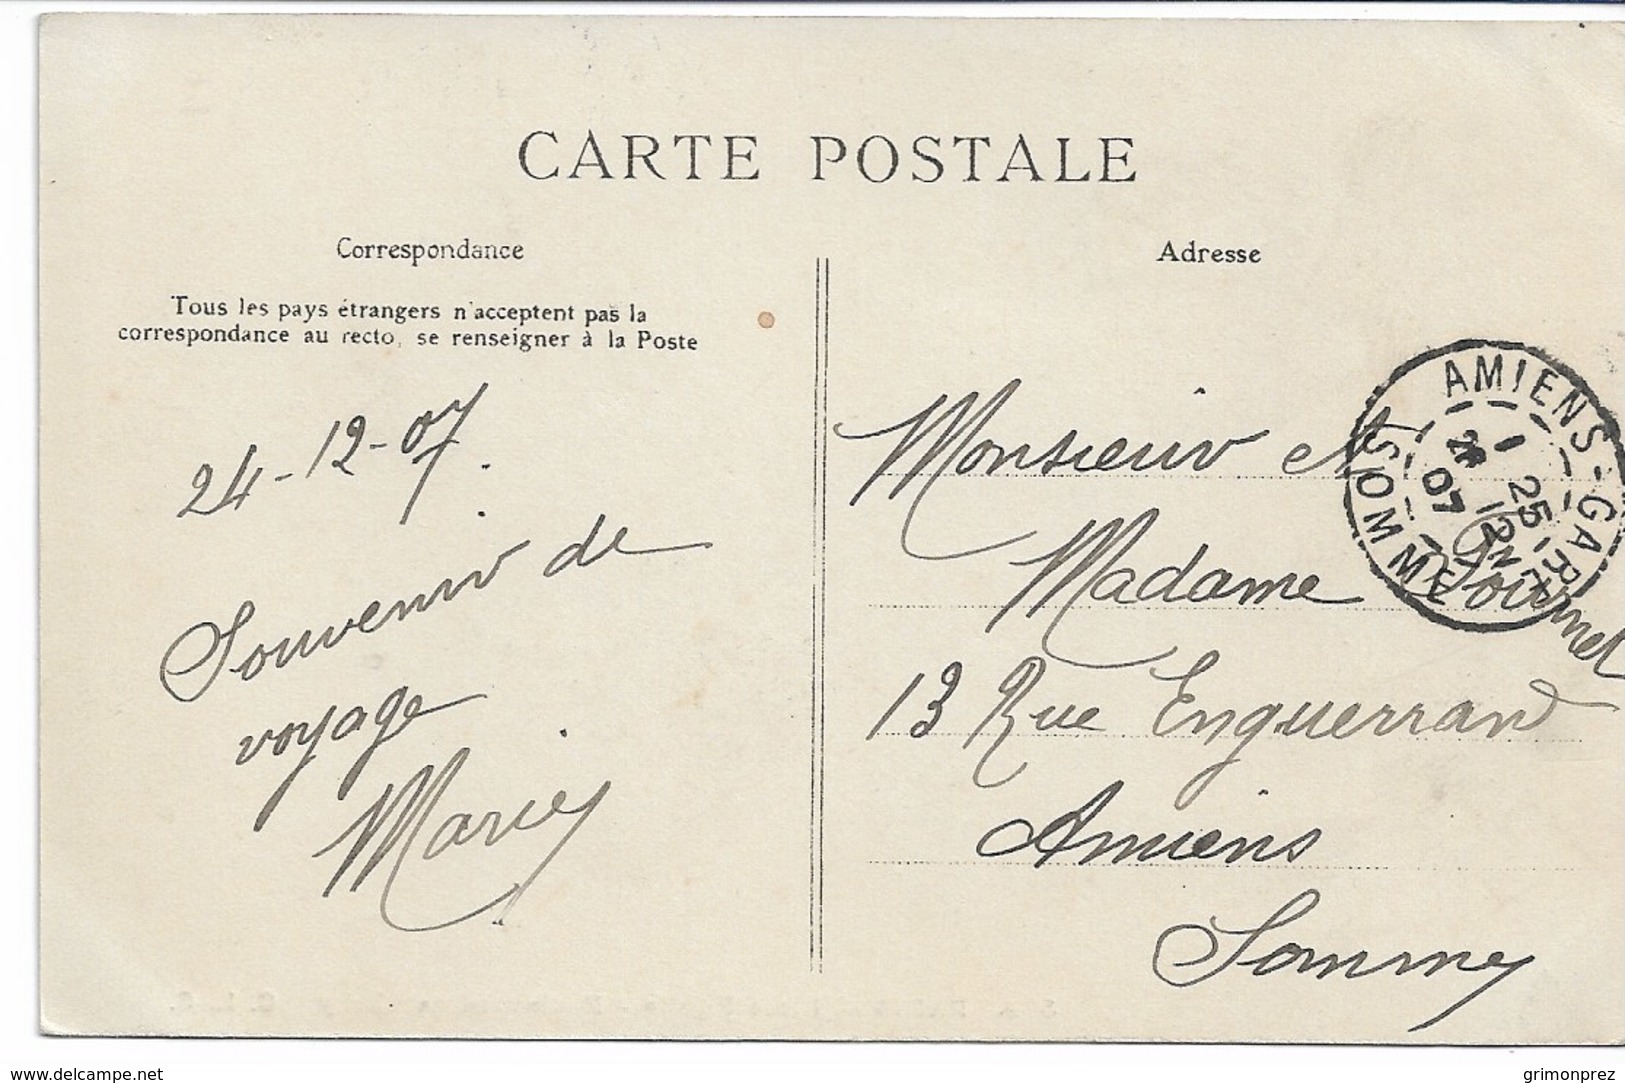 CARTE POSTALE
Correspondance
Tous les pays étrangers n'acceptent pas la
correspondance au recto, se renseigner à la Poste
24-12-07.
Souvenir de
voyage
Marie
Adresse
Monsieur et
Madame
13 Rue Enguerrand
Amiens
Somme
AMIENS-GARE
SOMME
delcampe.net
grimonprez